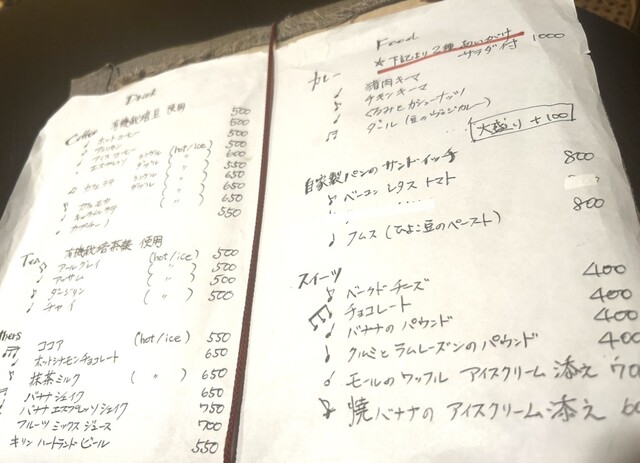 Drink
Coffee 有機栽培豆 使用 500
ホットコーヒー 500
アメリカン 500
アイスコーヒー 500
エスプレッソ シングル (hot/ice) 600
ダブル ( 〃 ) 550
カフェラテ シングル ( 〃 ) 650
ダブル ( 〃 ) 650
650
550
Tea 有機栽培茶葉 使用
アールグレイ (hot/ice) 500
アッサム ( 〃 ) 500
ダージリン ( 〃 ) 500
チャイ ( 〃 ) 500
thers
ココア (hot/ice) 550
ホットシナモンチョコレート 650
抹茶ミルク ( 〃 ) 650
バナナシェイク 650
バナナエスプレッソシェイク 750
フルーツミックスジュース 700
キリン ハートランドビール 550
Food
カレー ★下記より2種 あいがけ 1000
サラダ付
猪肉キーマ
チキンキーマ
くるみとカシューナッツ
ダール (豆のヴィーガンカレー)
大盛り +100
自家製パンのサンドイッチ
ベーコン レタス トマト 800
フムス (ひよこ豆のペースト) 800
スイーツ
ベークドチーズ 400
チョコレート 400
バナナの パウンド 400
クルミとラムレーズンのパウンド 400
モールのワッフル アイスクリーム 添え 70
焼バナナの アイスクリーム添え 60